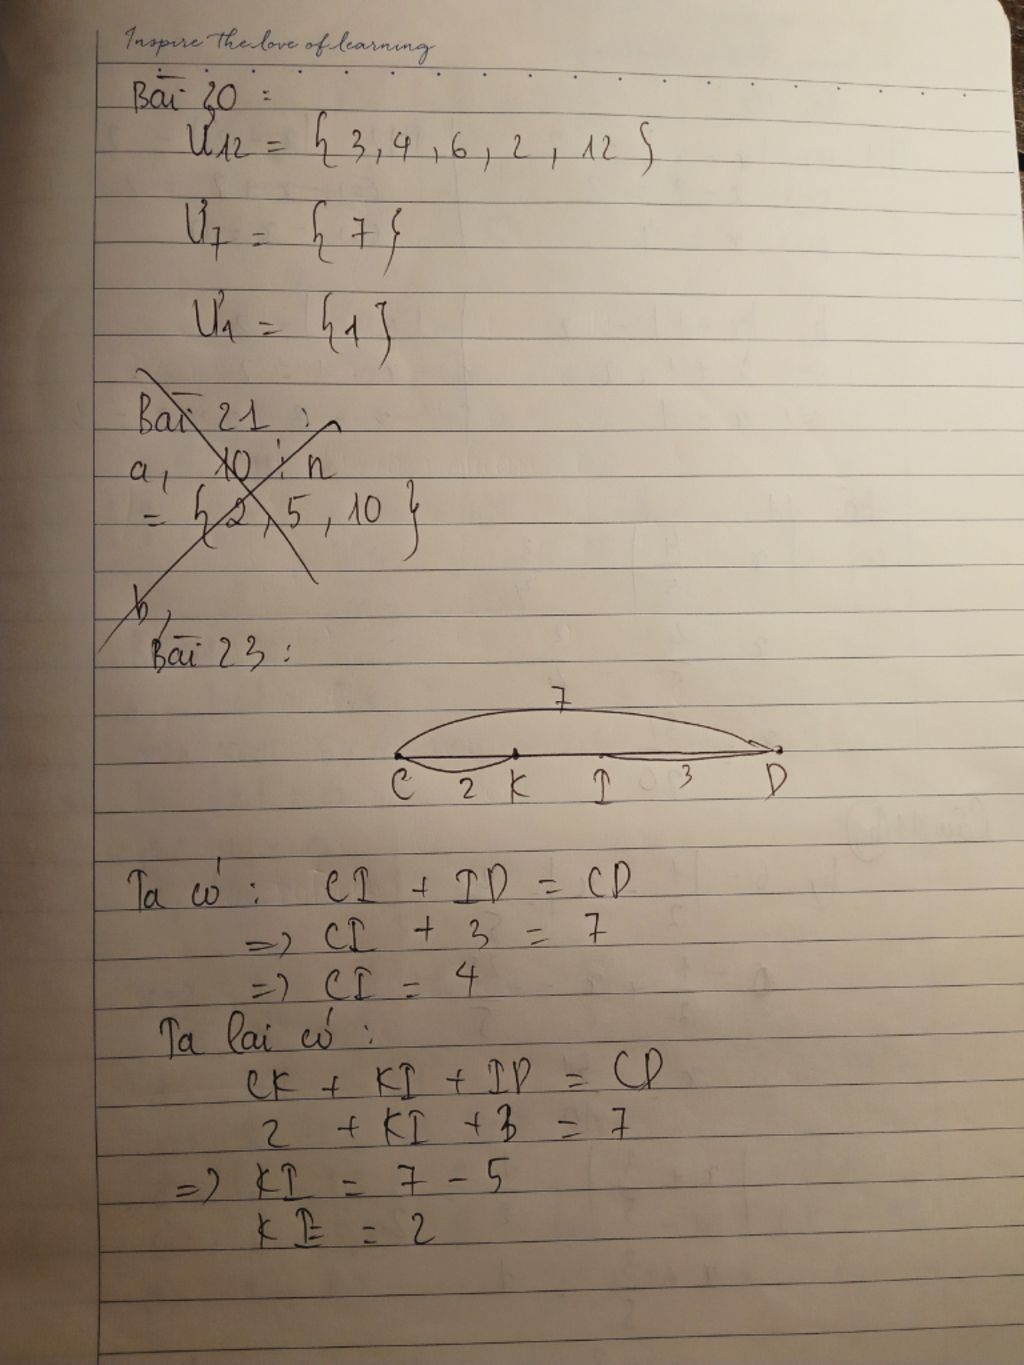 Inspire the love of learning
Bài 20 :
Ư12 = { 3, 4, 6, 2, 12 }
Ư7 = { 7 }
Ư1 = { 1 }
Bài 21 :
a, 10 ⋮ n
= { 2, 5, 10 }
b,
Bài 23 :
7
C 2 K I 3 D
Ta có : CI + ID = CD
=> CI + 3 = 7
=> CI = 4
Ta lai có :
CK + KI + ID = CD
2 + KI + 3 = 7
=> KI = 7 - 5
KI = 2